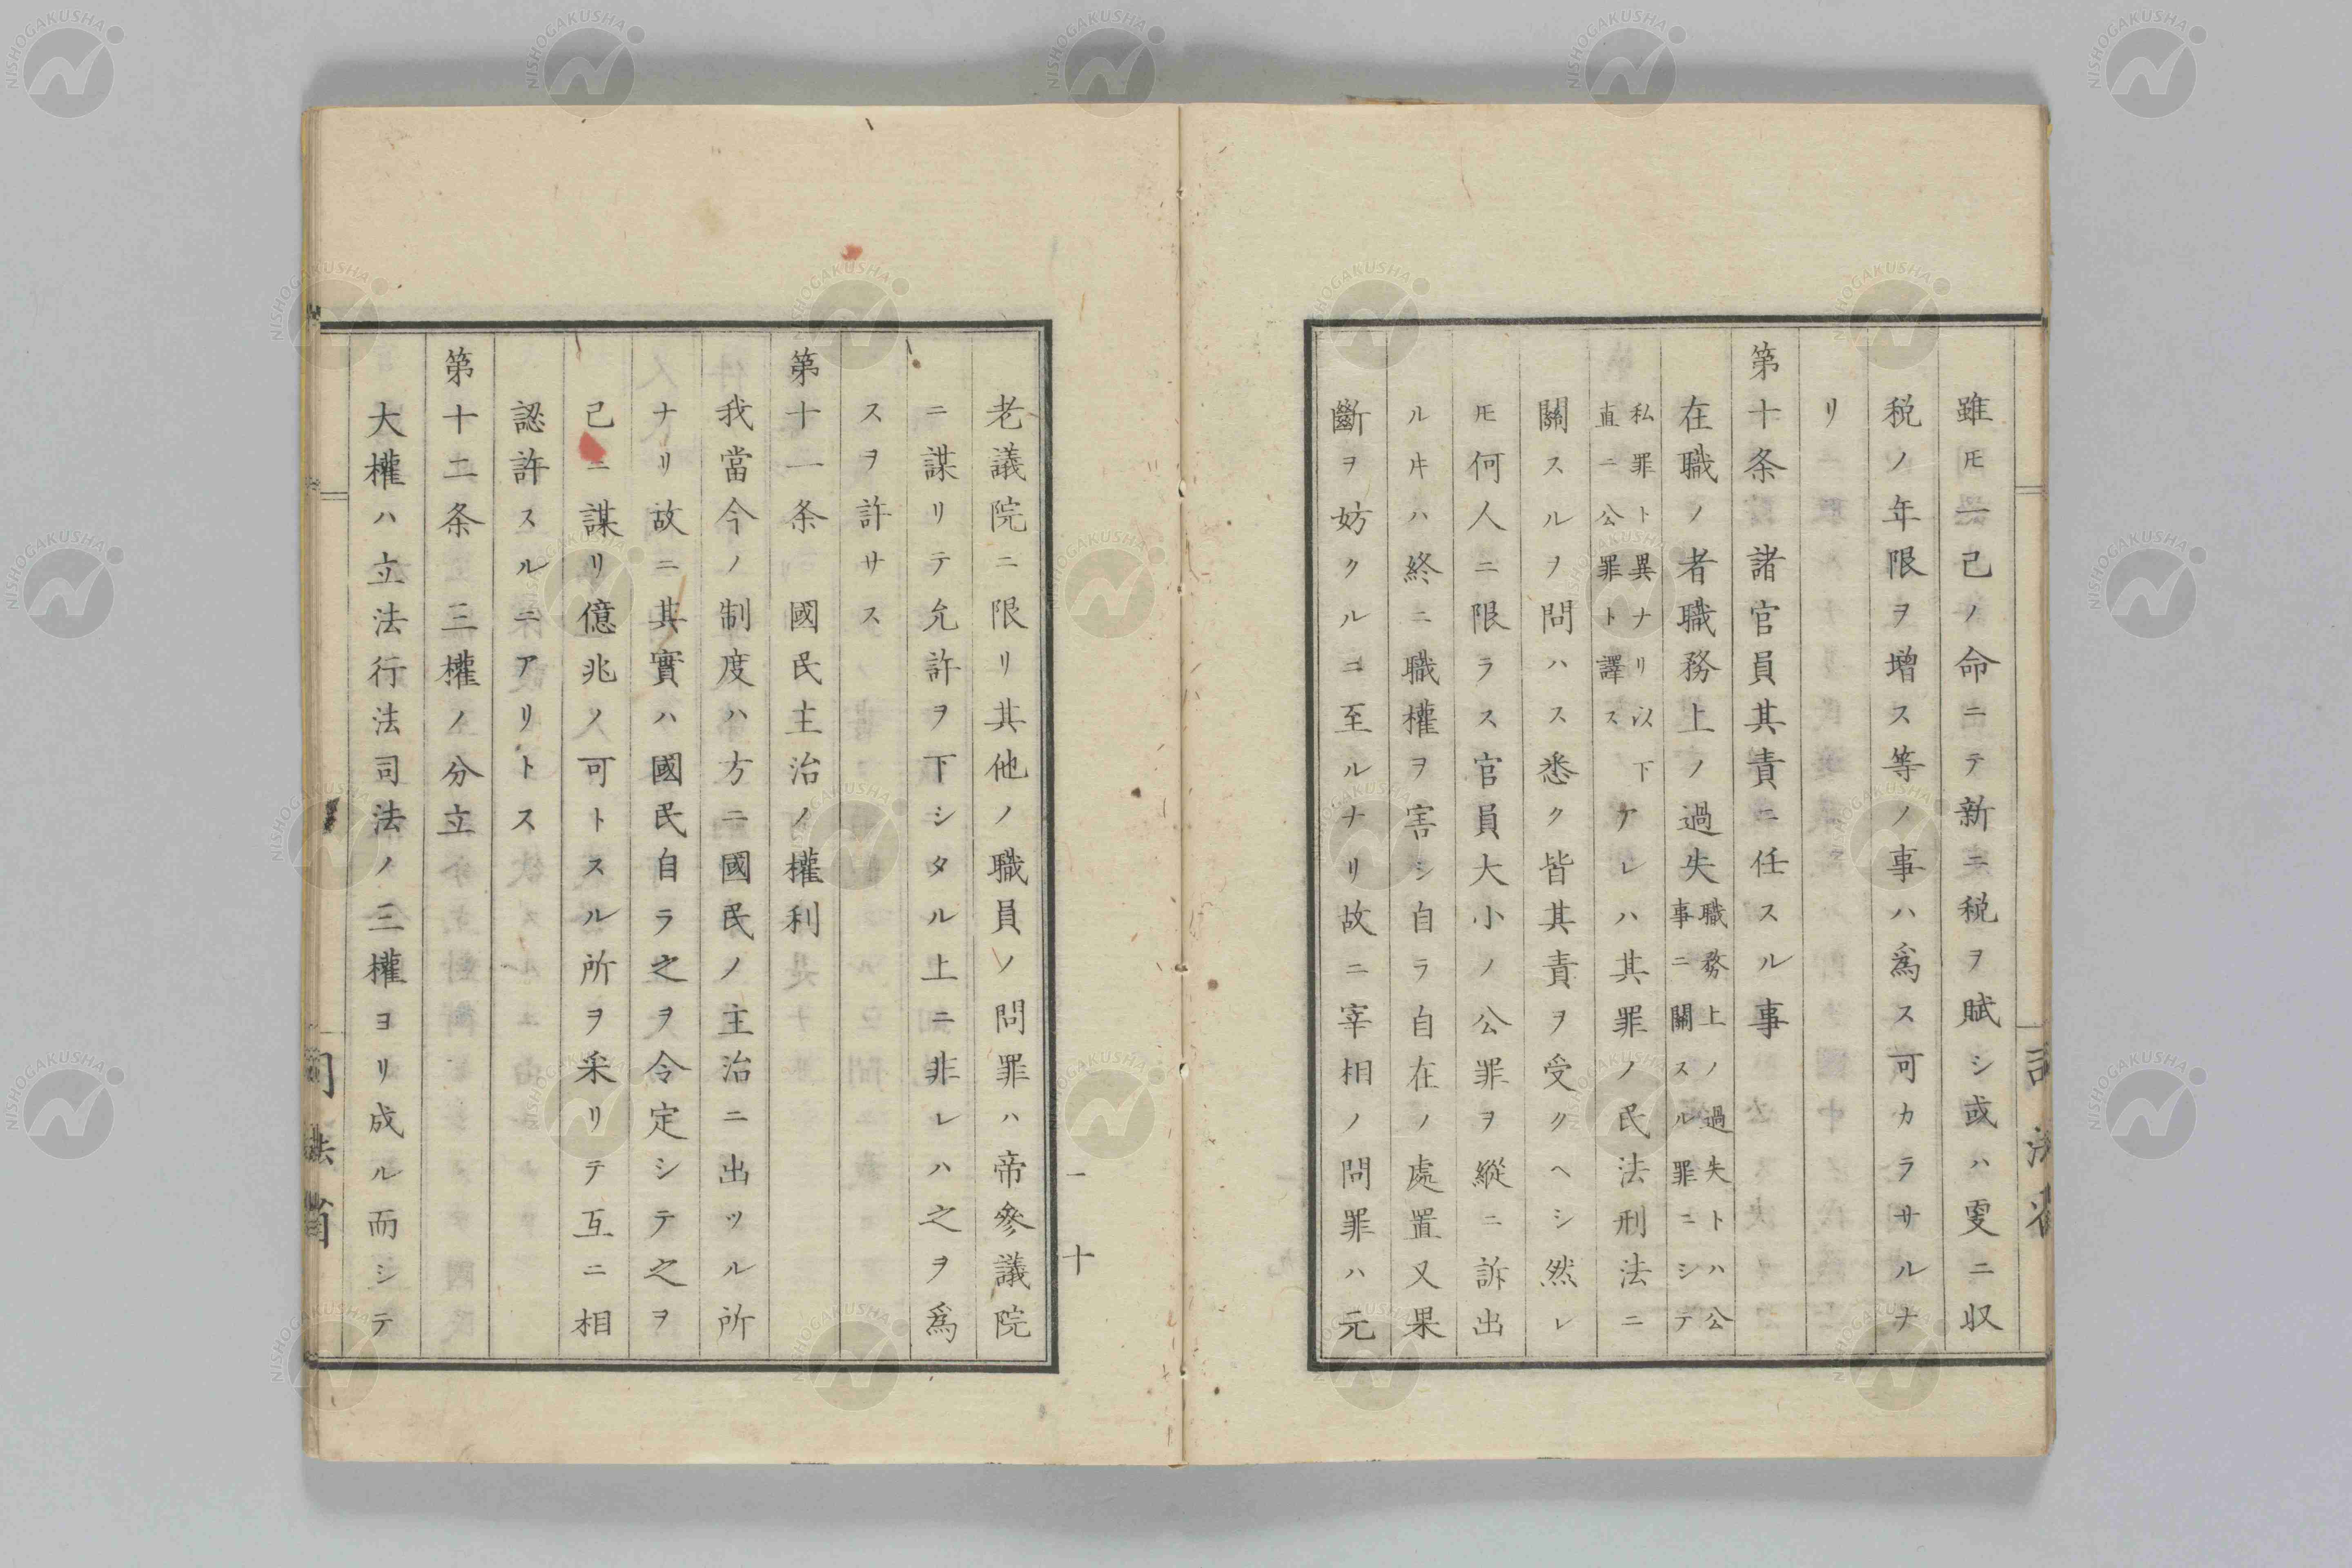 雖𪜈一己ノ命ニテ新ニ税ヲ賦シ或ハ更ニ収
税ノ年限ヲ増ス等ノ事ハ爲ス可カラサルナ
リ
第十条 諸官員其責ニ任スル事
在職ノ者職務上ノ過失職務上ノ過失トハ公事ニ關スル罪ニシテ
私罪ト異ナリ以下直ニ公罪ト譯スアレハ其罪ノ民法刑法ニ
關スルヲ問ハス悉ク皆其責ヲ受クヘシ然レ
𪜈何人ニ限ラス官員大小ノ公罪ヲ縱ニ訴出
ル𬼂ハ終ニ職權ヲ害シ自ラ自在ノ處置又果
斷ヲ妨クルニ至ルナリ故ニ宰相ノ問罪ハ元
一十
老議院ニ限リ其他ノ職員ノ問罪ハ帝參議院
ニ謀リテ允許ヲ下シタル上ニ非レハ之ヲ爲
スヲ許サス
第十一条 國民主治ノ權利
我當今ノ制度ハ方ニ國民ノ主治ニ出ツル所
ナリ故ニ其實ハ國民自ラ之ヲ令定シテ之ヲ
己ニ謀リ億兆ノ可トスル所ヲ采リテ互ニ相
認許スルニアリトス
第十二条 三權ノ分立
大權ハ立法行法司法ノ三權ヨリ成ル而シテ
司法省